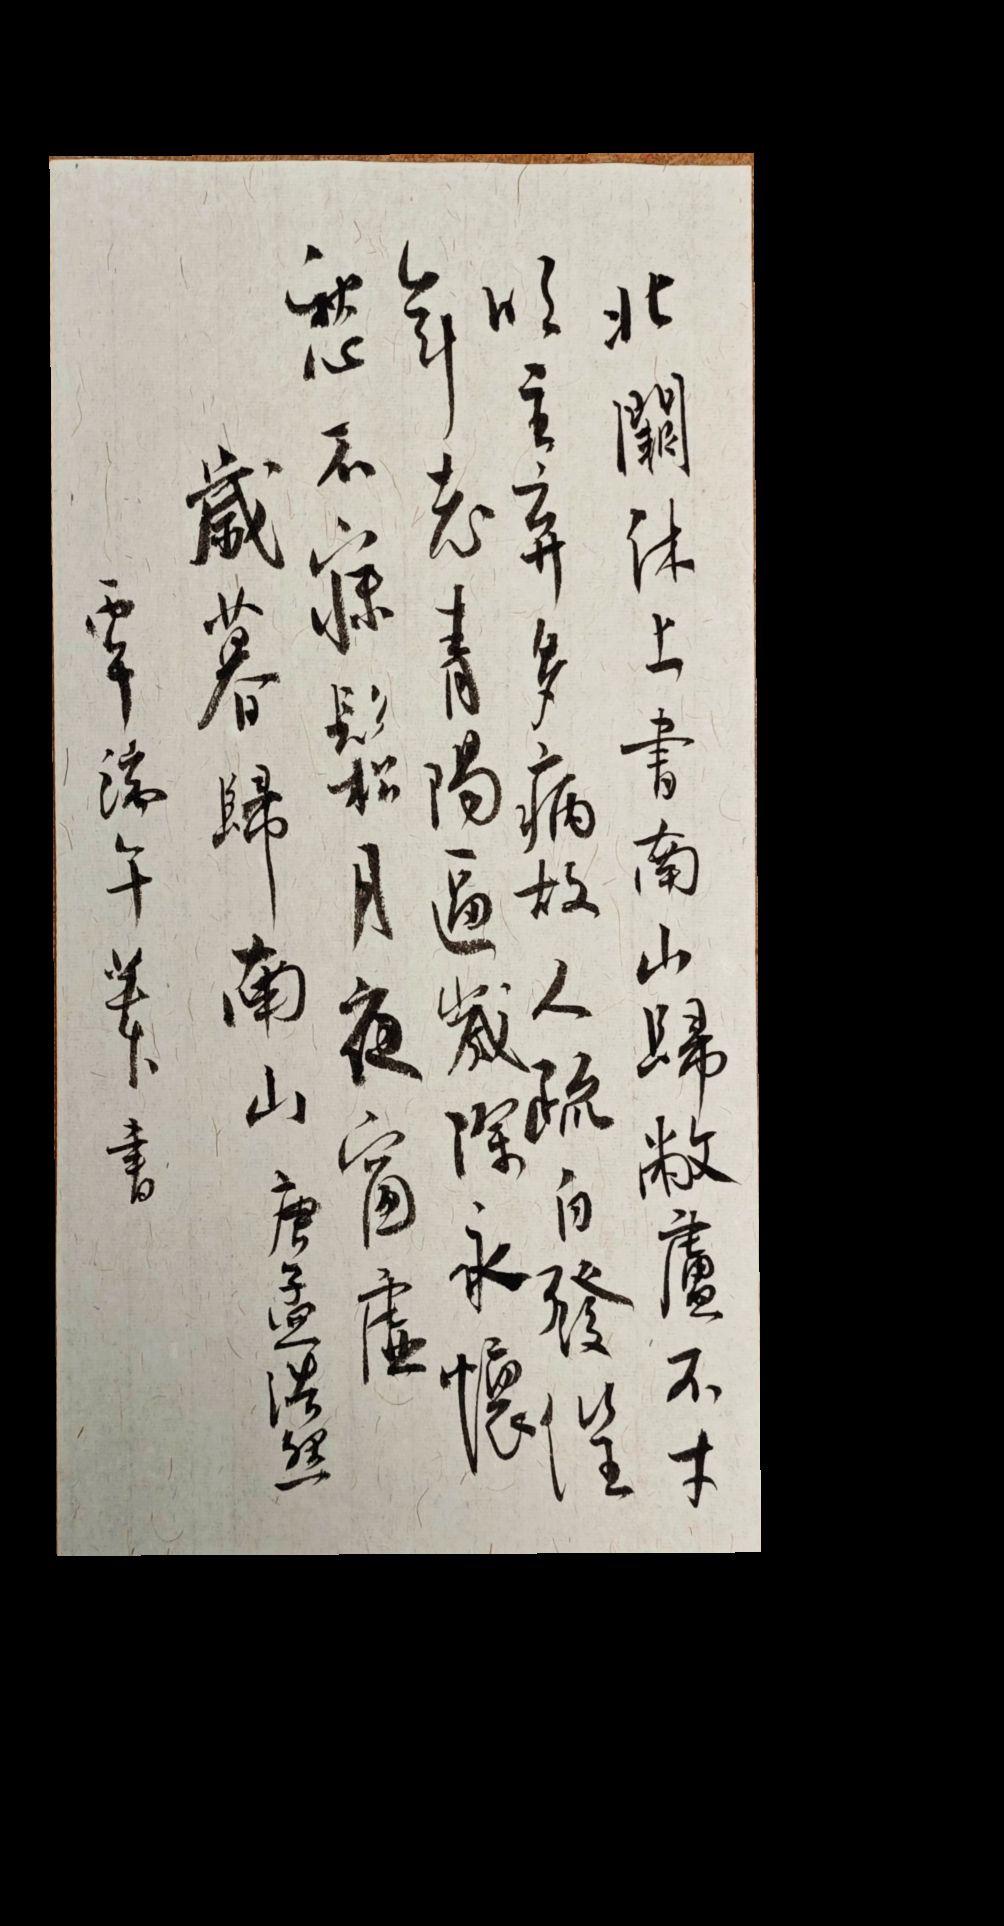 北闕休上書南山歸敝廬不才
明主弃多病故人疏白發催
年老青陽逼歲除永懷
愁不寐松月夜窗虛
歲暮歸南山 唐孟浩然
端午 書